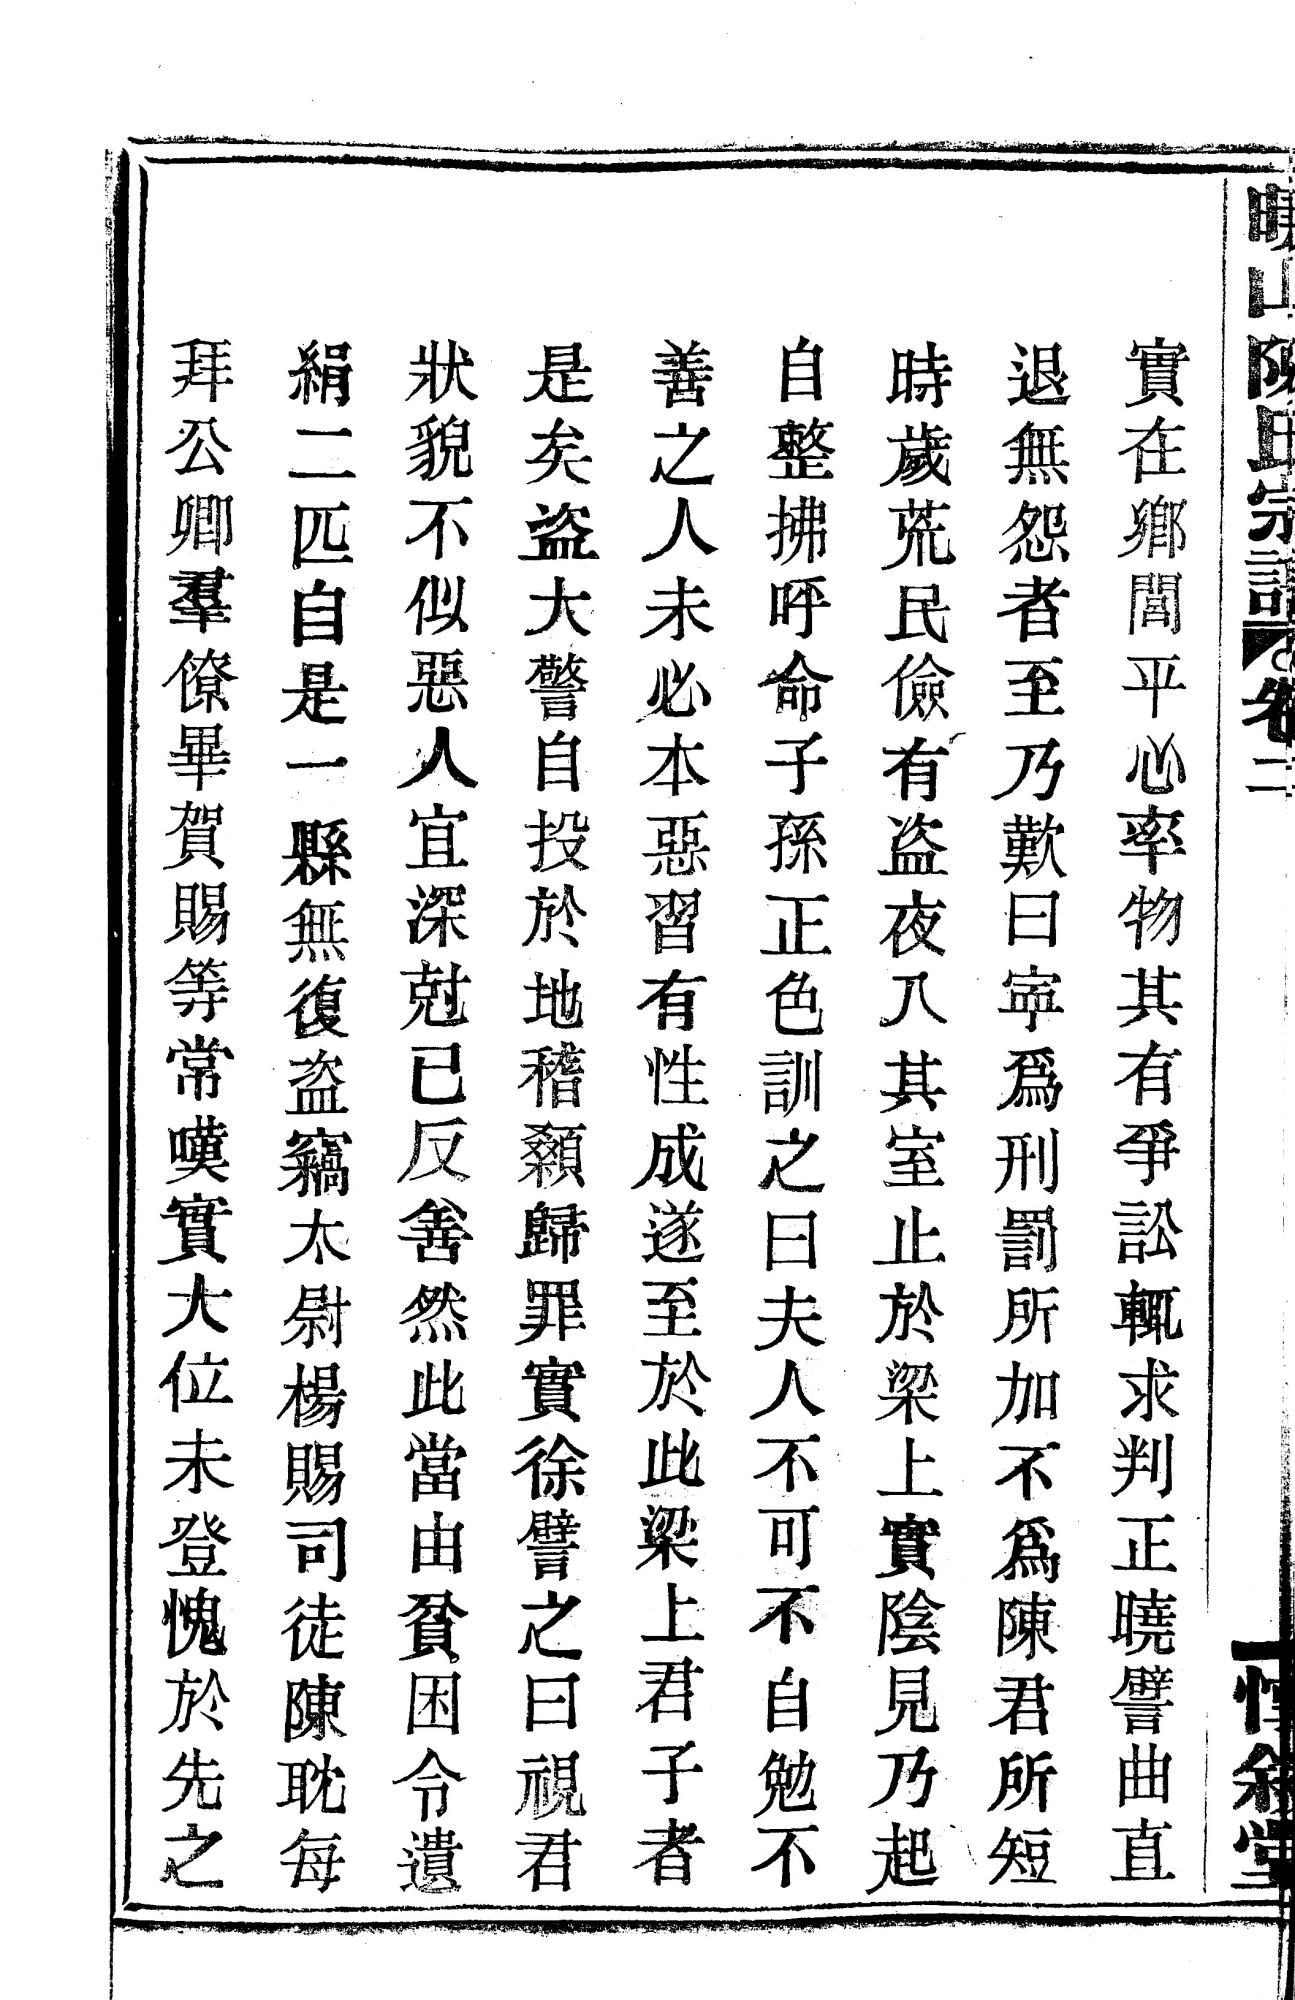 山陳氏宗譜 卷二 惇叙堂
實在鄉閭平心率物其有爭訟輒求判正曉譬曲直
退無怨者至乃歎曰寧爲刑罰所加不爲陳君所短
時歲荒民儉有盗夜入其室止於梁上實陰見乃起
自整拂呼命子孫正色訓之曰夫人不可不自勉不
善之人未必本惡習有性成遂至於此梁上君子者
是矣盗大警自投於地稽顙歸罪實徐譬之曰視君
狀貌不似惡人宜深尅已反善然此當由貧困令遺
絹二匹自是一縣無復盗竊太尉楊賜司徒陳耽每
拜公卿羣僚畢賀賜等常嘆實大位未登愧於先之